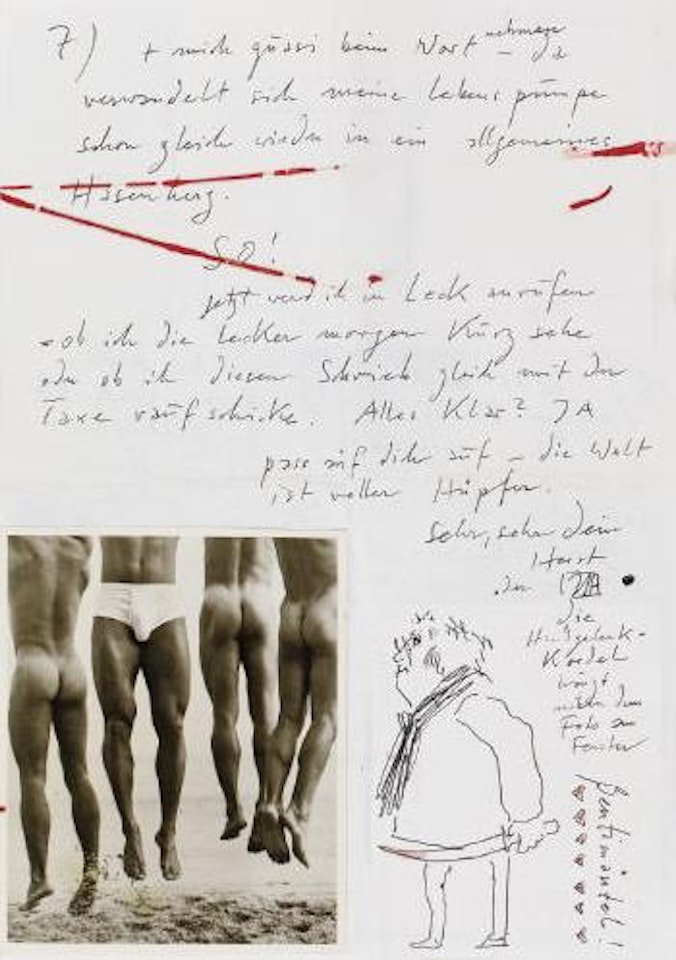 7) + mich güssi beim Wort
verwandelt sich meine Lebenspumpe
schon gleich wieder in ein allgemeines
Hasenherz.
SO!
jetzt werd ich in Leck anrufen
ob ich die Lecker morgen kurz sehe
oder ob ich diesen Schrieb gleich mit der
Taxe rauf schicke. Alles Klar? JA
pass auf dich auf – die Welt
ist voller Hüpfer.
sehr, sehr dein
Horst
die
Kordel
hängt
neben dem
Foto am
Fenster
Sentimäntel!